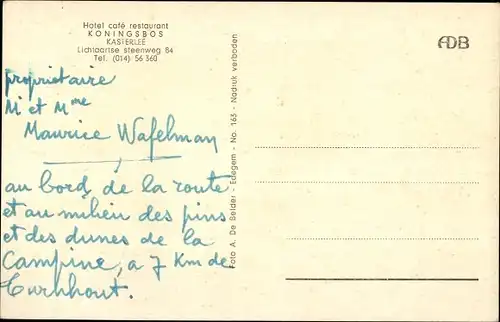 Hotel café restaurant
KONINGSBOS
KASTERLEE
Lichtaartse steenweg 84
Tel. (014) 56 360
propriétaire
Mr et Mme
Maurice Wafelman
au bord de la route
et au milieu des pins
et des dunes de la
Campine, a 7 Km de
Turnhout.
Foto A. De Belder - Edegem - No. 163 - Nadruk verboden
ADB